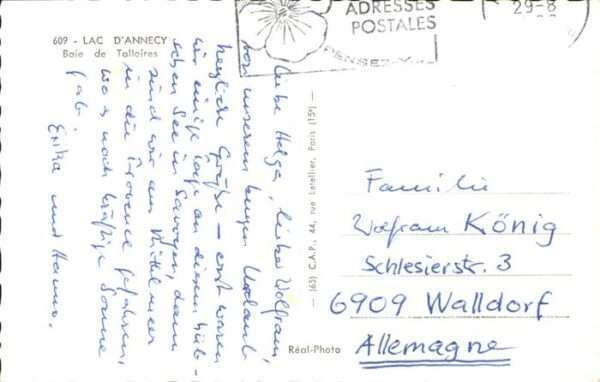 609 - LAC D'ANNECY
Baie de Talloires
ADRESSES
POSTALES
PENSEZ-Y...
29-8
Liebe Helga, lieber Wolfram,
von unserem kurzen Urlaub
herzliche Grüße – erst waren
wir einige Tage an diesem hüb-
schen See in Savoyen, dann
sind wir ans Mittelmeer
in die Provence gefahren,
wo es noch kräftige Sonne
gab.
Erika und Hanno.
— (63) C.A.P., 44, rue Letellier, Paris (15e) —
Réal-Photo
Familie
Wolfram König
Schlesierstr. 3
6909 Walldorf
Allemagne